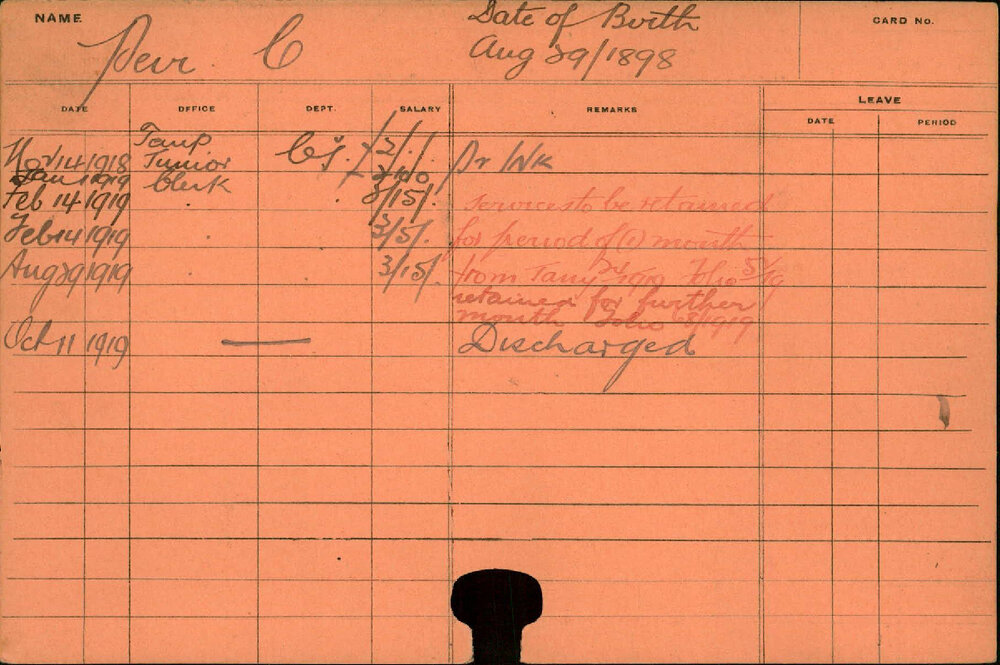 NAME
C
Date of Birth
Aug 29/1898
CARD No.
DATE OFFICE DEPT. SALARY REMARKS LEAVE
DATE PERIOD
Nov 14 1918 Temp C's. 2/./. Pr Wk
Jan 1 1919 Junior
Feb 14 1919 Clerk 3/15/. Services to be retained
Feb 14 1919 3/5/. for period of (1) month
Aug 29 1919 3/15/. from Jany 1919 Folio
retained for further
month Folio
Oct 11 1919 — Discharged